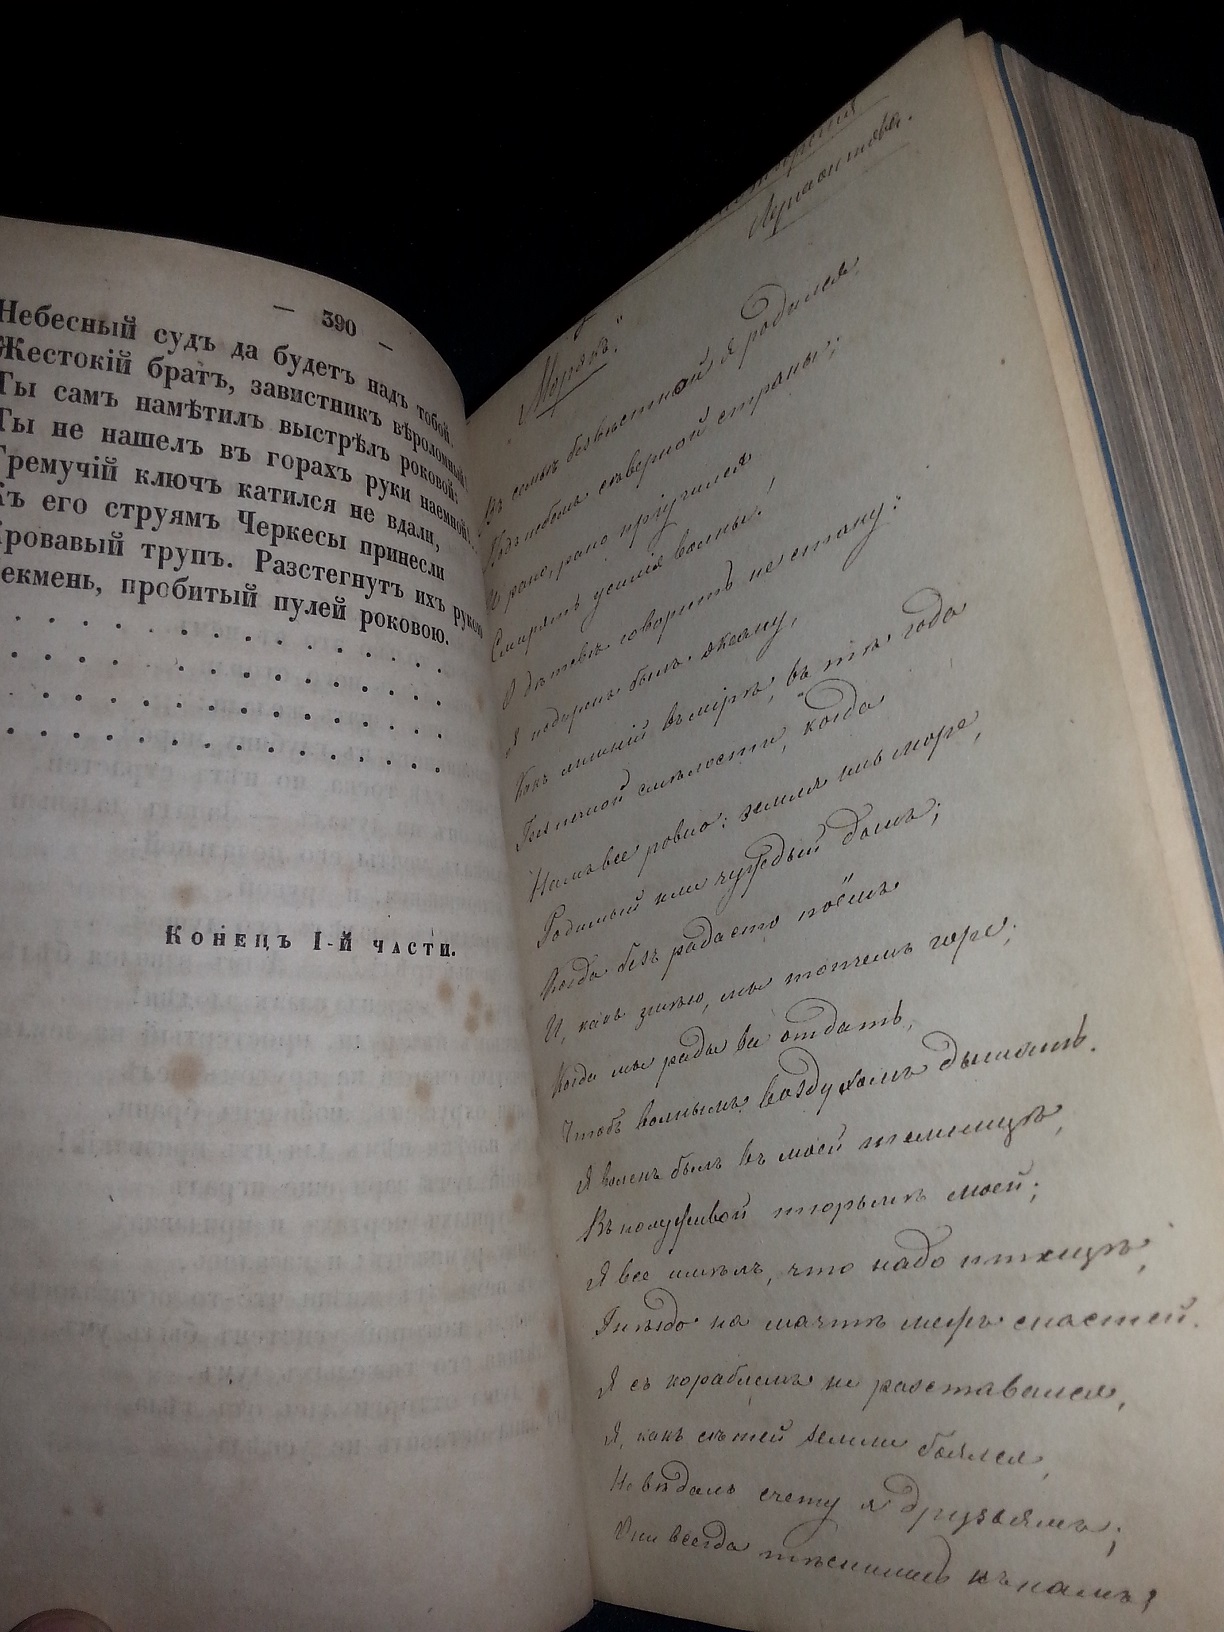 — 390 —
Небесный судъ да будетъ надъ тобой,
Жестокій братъ, завистникъ вѣроломный!
Ты самъ намѣтилъ выстрѣлъ роковой;
Ты не нашелъ въ горахъ руки наемной!..
Гремучій ключъ катился не вдали,
Къ его струямъ Черкесы принесли
Кровавый трупъ. Разстегнутъ ихъ рукою
Чекмень, пробитый пулей роковою.
. . . . . . . . . . . . .
. . . . . . . . . . . . .
. . . . . . . . . . . . .
. . . . . . . . . . . . .
Конецъ I-й части.
Лермонтова.
„Морякъ."
Въ семьѣ безвѣстной я родился
Подъ небомъ сѣверной страны;
И рано, рано пріучился
Смирять усилія волны!
О дѣтствѣ говорить не стану:
Я подаренъ былъ океану,
Какъ лишній въ мірѣ, въ тѣ года
Безпечной смѣлости, когда
Намъ все ровно: земля иль море,
Родимый или чуждый домъ;
Когда безъ радости поёмъ
И, какъ змѣю, мы топчемъ горе;
Когда мы рады все отдать,
Чтобъ вольнымъ воздухомъ дышать.
Я воленъ былъ въ моей темницѣ,
Въ полуживой тюрьмѣ моей;
Я все имѣлъ, что надо птицѣ,
Гнѣздо на мачтѣ межъ снастей.
Я съ кораблемъ не разставался,
Я, какъ сѣтей земли боялся,
Не вѣдалъ счету я друзьямъ;
Они всегда тѣснились къ намъ;